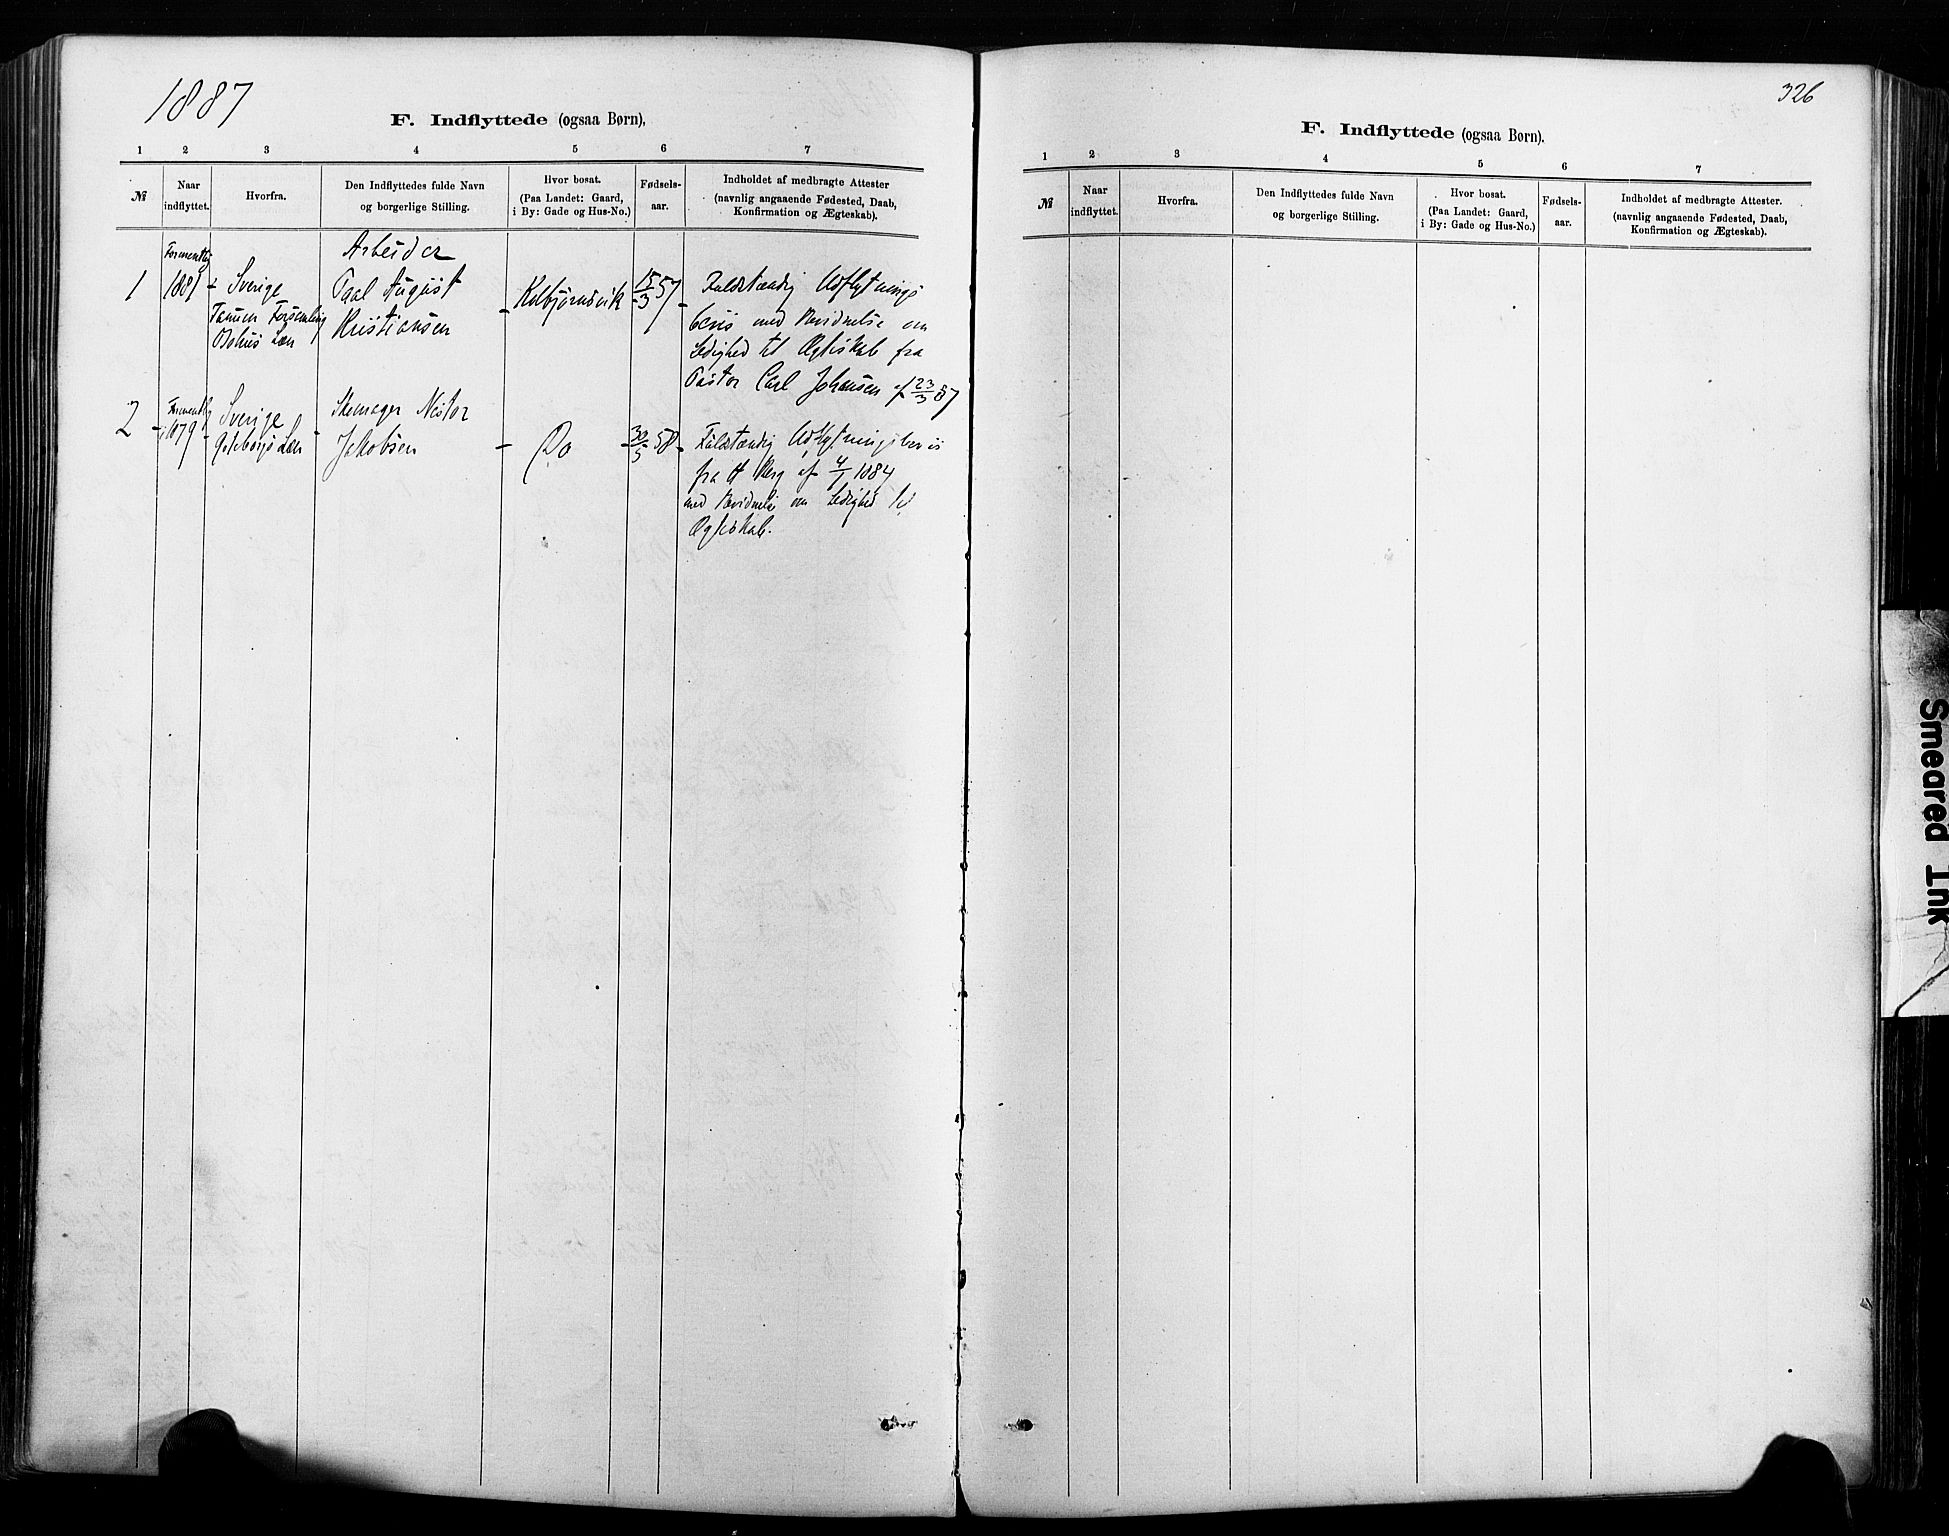 1887
F. Indflyttede (ogsaa Børn),
1 2 3 4 5 6 7
№ Naar indflyttet. Hvorfra. Den Indflyttedes fulde Navn og borgerlige Stilling. Hvor bosat. (Paa Landet: Gaard, i By: Gade og Hus-No.) Fødsels-aar. Indholdet af medbragte Attester (navnlig angaaende Fødested, Daab, Konfirmation og Ægteskab).
Formentlig Arbeider
1 1881 - Sverige Paal August - Kolbjørnsvik 15/3 57 - Fuldstændig Udflytnings
Tanum Forsamling Kristiansen bevis med Bevidnelse om
Bohus Læn Ledighed til Ægteskab fra
Pastor Carl Johansen af 23/3 87
2 - Formentlig Sverige Skomager Nestor
1879 - Gøteborgs Læn - Jakobsen - Do - 30/5 58 - Fuldstændig Udflytningsbevis
fra H Berg af 4/1 1884
med Bevidnelse om Ledighed til
Ægteskab.
326
F. Indflyttede (ogsaa Børn).
1 2 3 4 5 6 7
№ Naar indflyttet. Hvorfra. Den Indflyttedes fulde Navn og borgerlige Stilling. Hvor bosat. (Paa Landet: Gaard, i By: Gade og Hus-No.) Fødsels-aar. Indholdet af medbragte Attester. (navnlig angaaende Fødested, Daab, Konfirmation og Ægteskab).
Smeared Ink